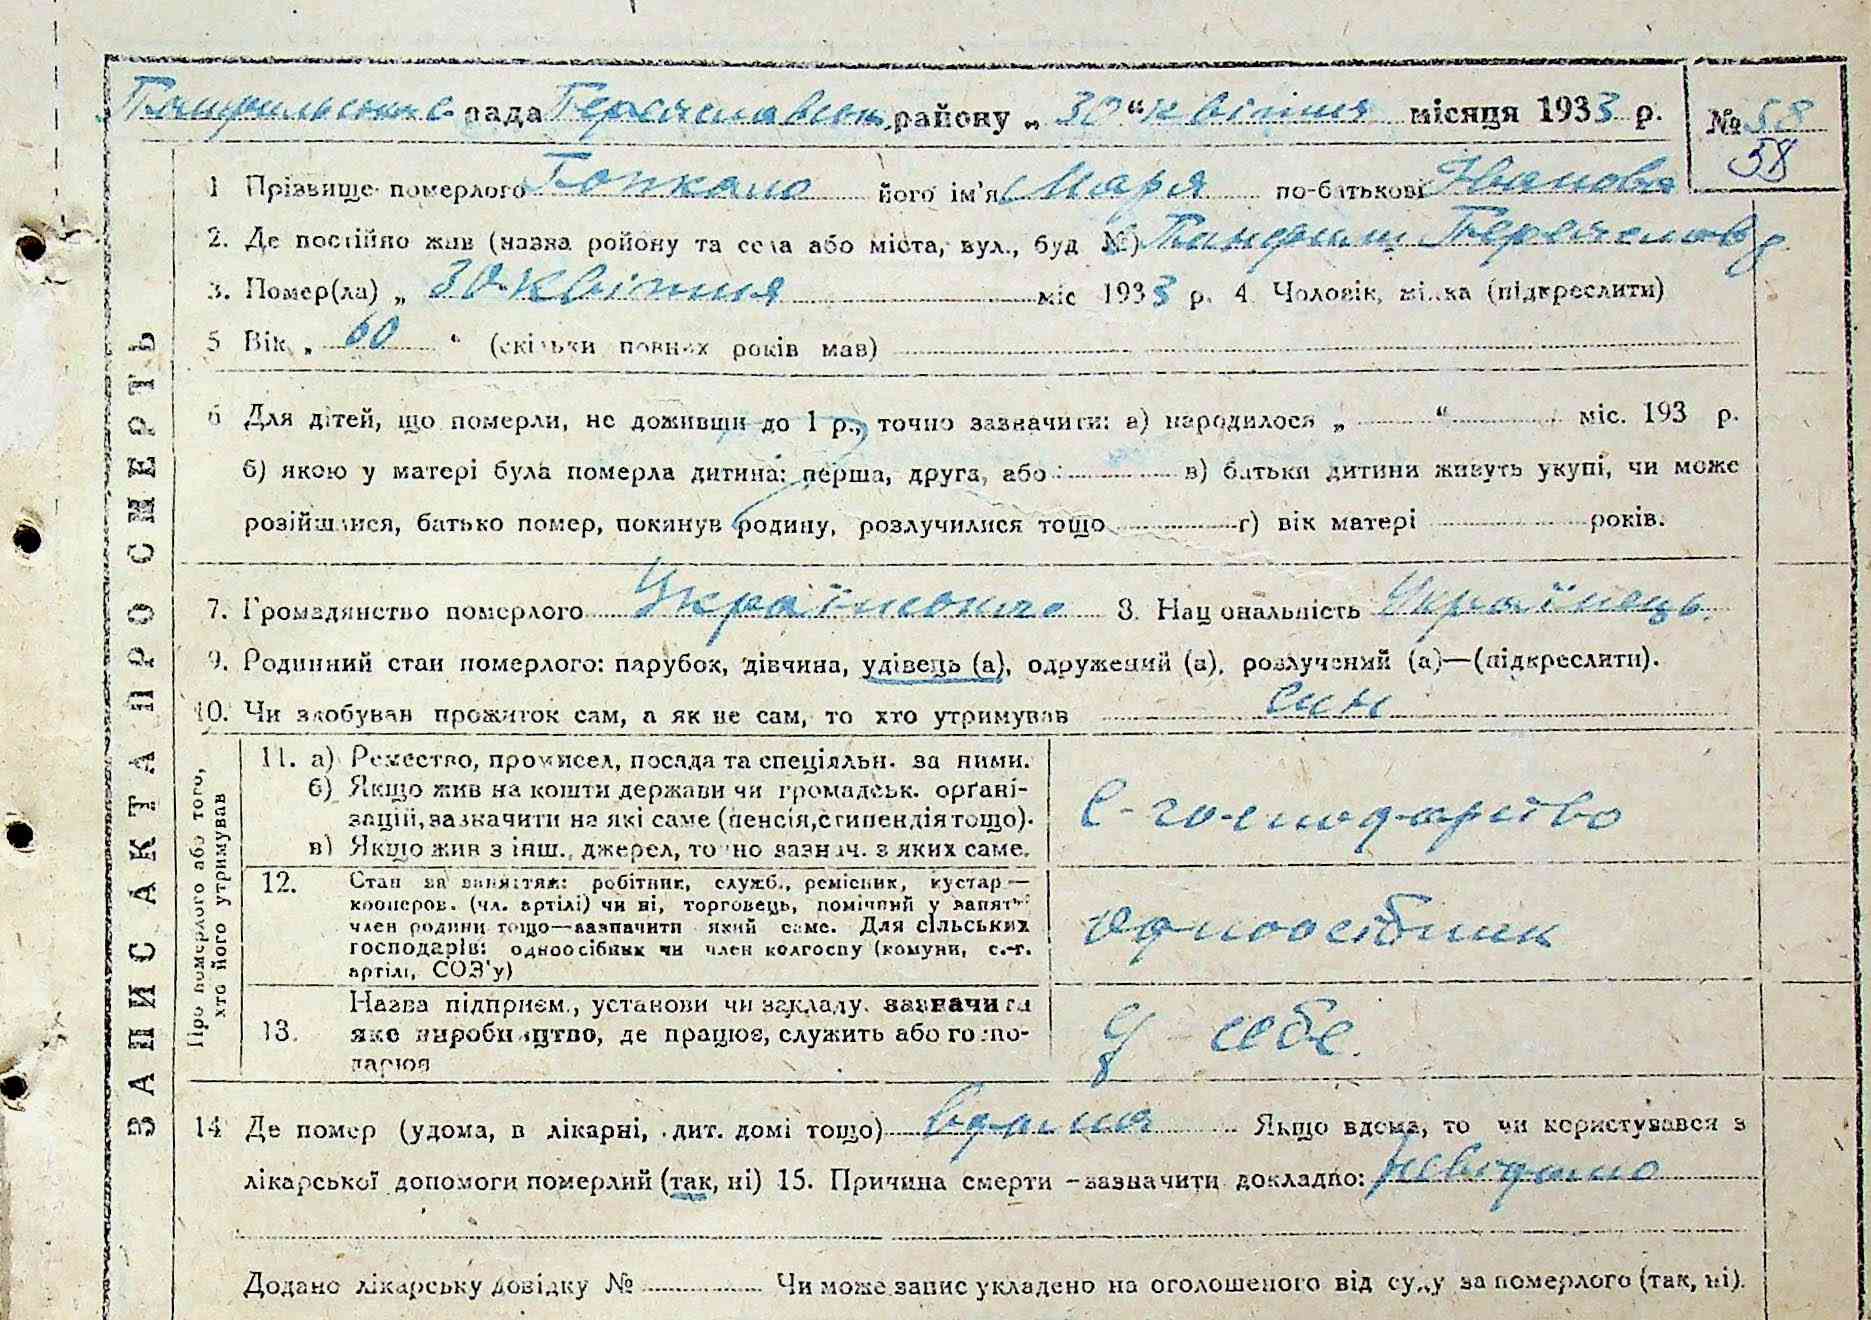 рада Переяславськ. району „ 30 “ квітня місяця 1933 р. № 58
58
1 Прізвище померлого його ім'я Марія по-батькові Іванова
2. Де постійно жив (назва ройону та села або міста, вул., буд №)
3. Помер(ла) „ 30 квітня міс 1933 р. 4 Чоловік, жінка (підкреслити)
5 Вік „ 60 “ (скільки повних років мав)
6 Для дітей, що померли, не доживши до 1 р., точно зазначити: а) народилося „ “ міс. 193 р.
б) якою у матері була померла дитина: перша, друга, або в) батьки дитини живуть укупі, чи може
розійшлися, батько помер, покинув родину, розлучилися тощо г) вік матері років.
7. Громадянство померлого Українське 8. Національність Українець.
9. Родинний стан померлого: парубок, дівчина, удівець (а), одружений (а), розлучений (а)—(підкреслити).
10. Чи здобував прожиток сам, а як не сам, то хто утримував син
ЗАПИС АКТА ПРО СМЕРТЬ
Про померлого або того,
хто його утримував
11. а) Ремество, промисел, посада та спеціяльн. за ними.
б) Якщо жив на кошти держави чи громадськ. орґані-
зацій, зазначити на які саме (пенсія, стипендія тощо).
в) Якщо жив з інш., джерел, точно зазнач. з яких саме.
С-господарство
12. Стан за заняттям: робітник, служб., ремісник, кустар—
кооперов. (чл. артілі) чи ні, торговець, помічний у занят.
член родини тощо—зазначити який саме. Для сільських
господарів: одноосібник чи член колгоспу (комуни, с.-г.
артілі, СОЗ'у)
одноосібник
13. Назва підприєм., установи чи закладу, зазначити
яке виробництво, де працює, служить або госпо-
дарює
У себе.
14 Де помер (удома, в лікарні, дит. домі тощо) вдома Якщо вдома, то чи користувався з
лікарської допомоги померлий (так, ні) 15. Причина смерти – зазначити докладно: невідомо
Додано лікарську довідку № Чи може запис укладено на оголошеного від суду за померлого (так, ні).